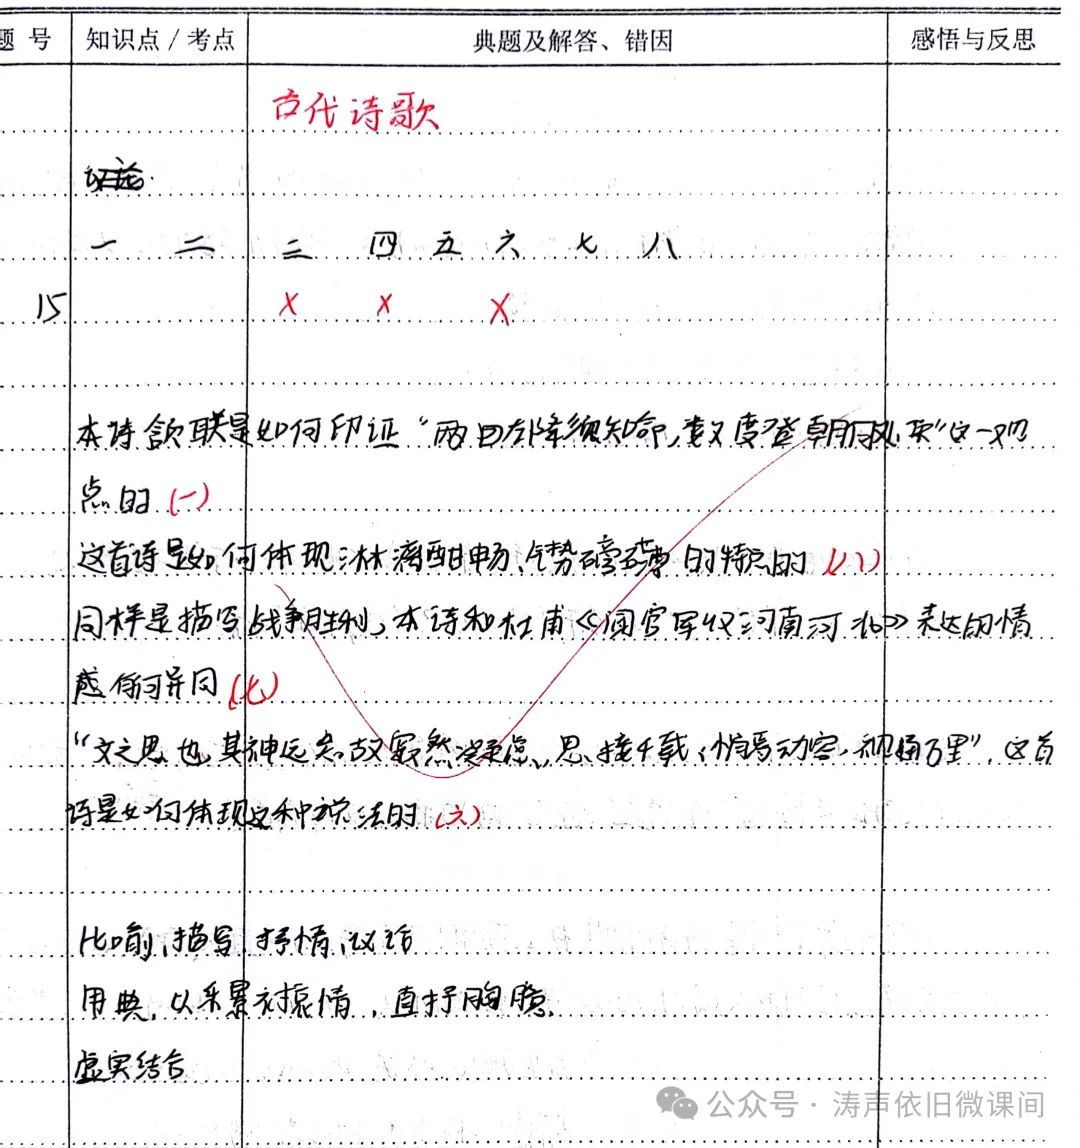 题 号 知识点／考点 典题及解答、错因 感悟与反思
古代诗歌
一 二 三 四 五 六 七 八
15 X X X
本诗颔联是如何印证“两句对降须知命,数度登朝何处求”这一观
点的(一)
这首诗是如何体现淋漓酣畅、气势磅礴的特点的(八)
同样是描写战争胜利,本诗和杜甫《闻官军收河南河北》表达的情
感有何异同(七)
“文之思也,其神远矣。故寂然凝虑,思接千载;悄焉动容,视通万里”,这首
诗是如何体现这种说法的(六)
比喻、描写、抒情、议论
用典,以乐景衬哀情,直抒胸臆.
虚实结合
公众号·涛声依旧微课间